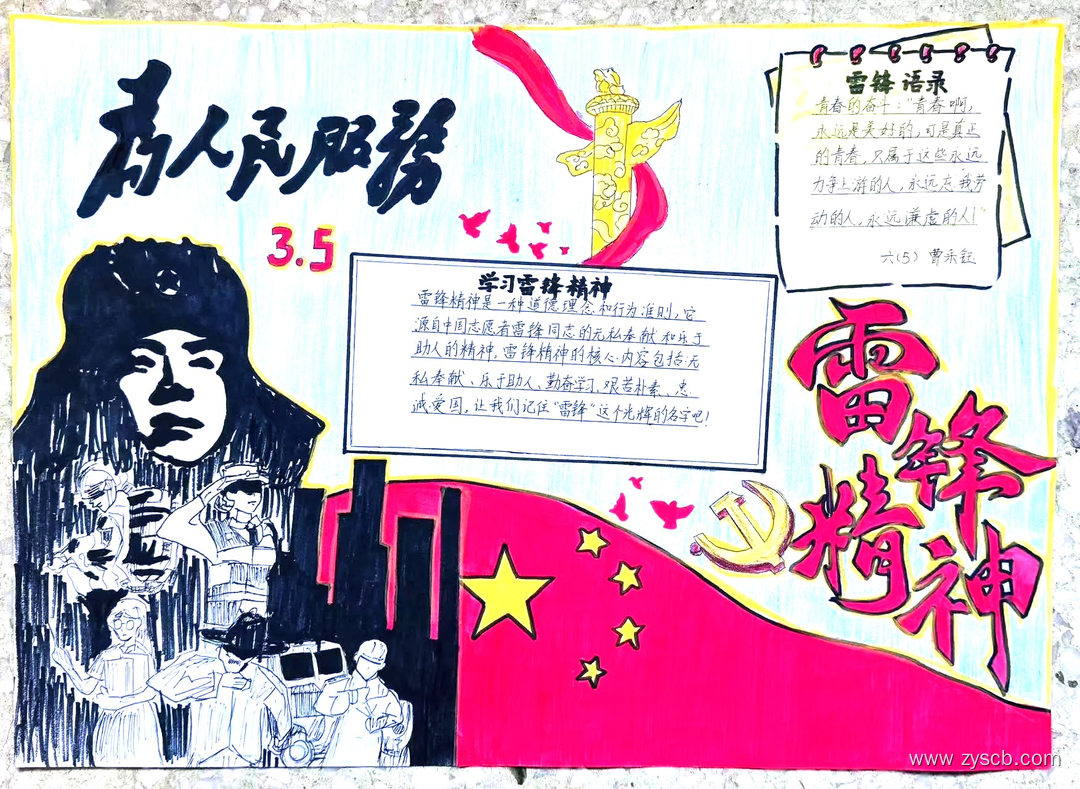 为人民服務
3.5
雷锋语录
青春的奋斗:“青春啊,
永远是美好的,可是真正
的青春,只属于这些永远
力争上游的人,永远忘我劳
动的人,永远谦虚的人!”
六(5) 曹乐钰
学习雷锋精神
雷锋精神是一种道德理念和行为准则,它
源自中国志愿者雷锋同志的无私奉献和乐于
助人的精神,雷锋精神的核心内容包括:无
私奉献、乐于助人、勤奋学习、艰苦朴素、忠
诚爱国,让我们记住“雷锋”这个光辉的名字吧!
雷锋
精神
www.zyscb.com